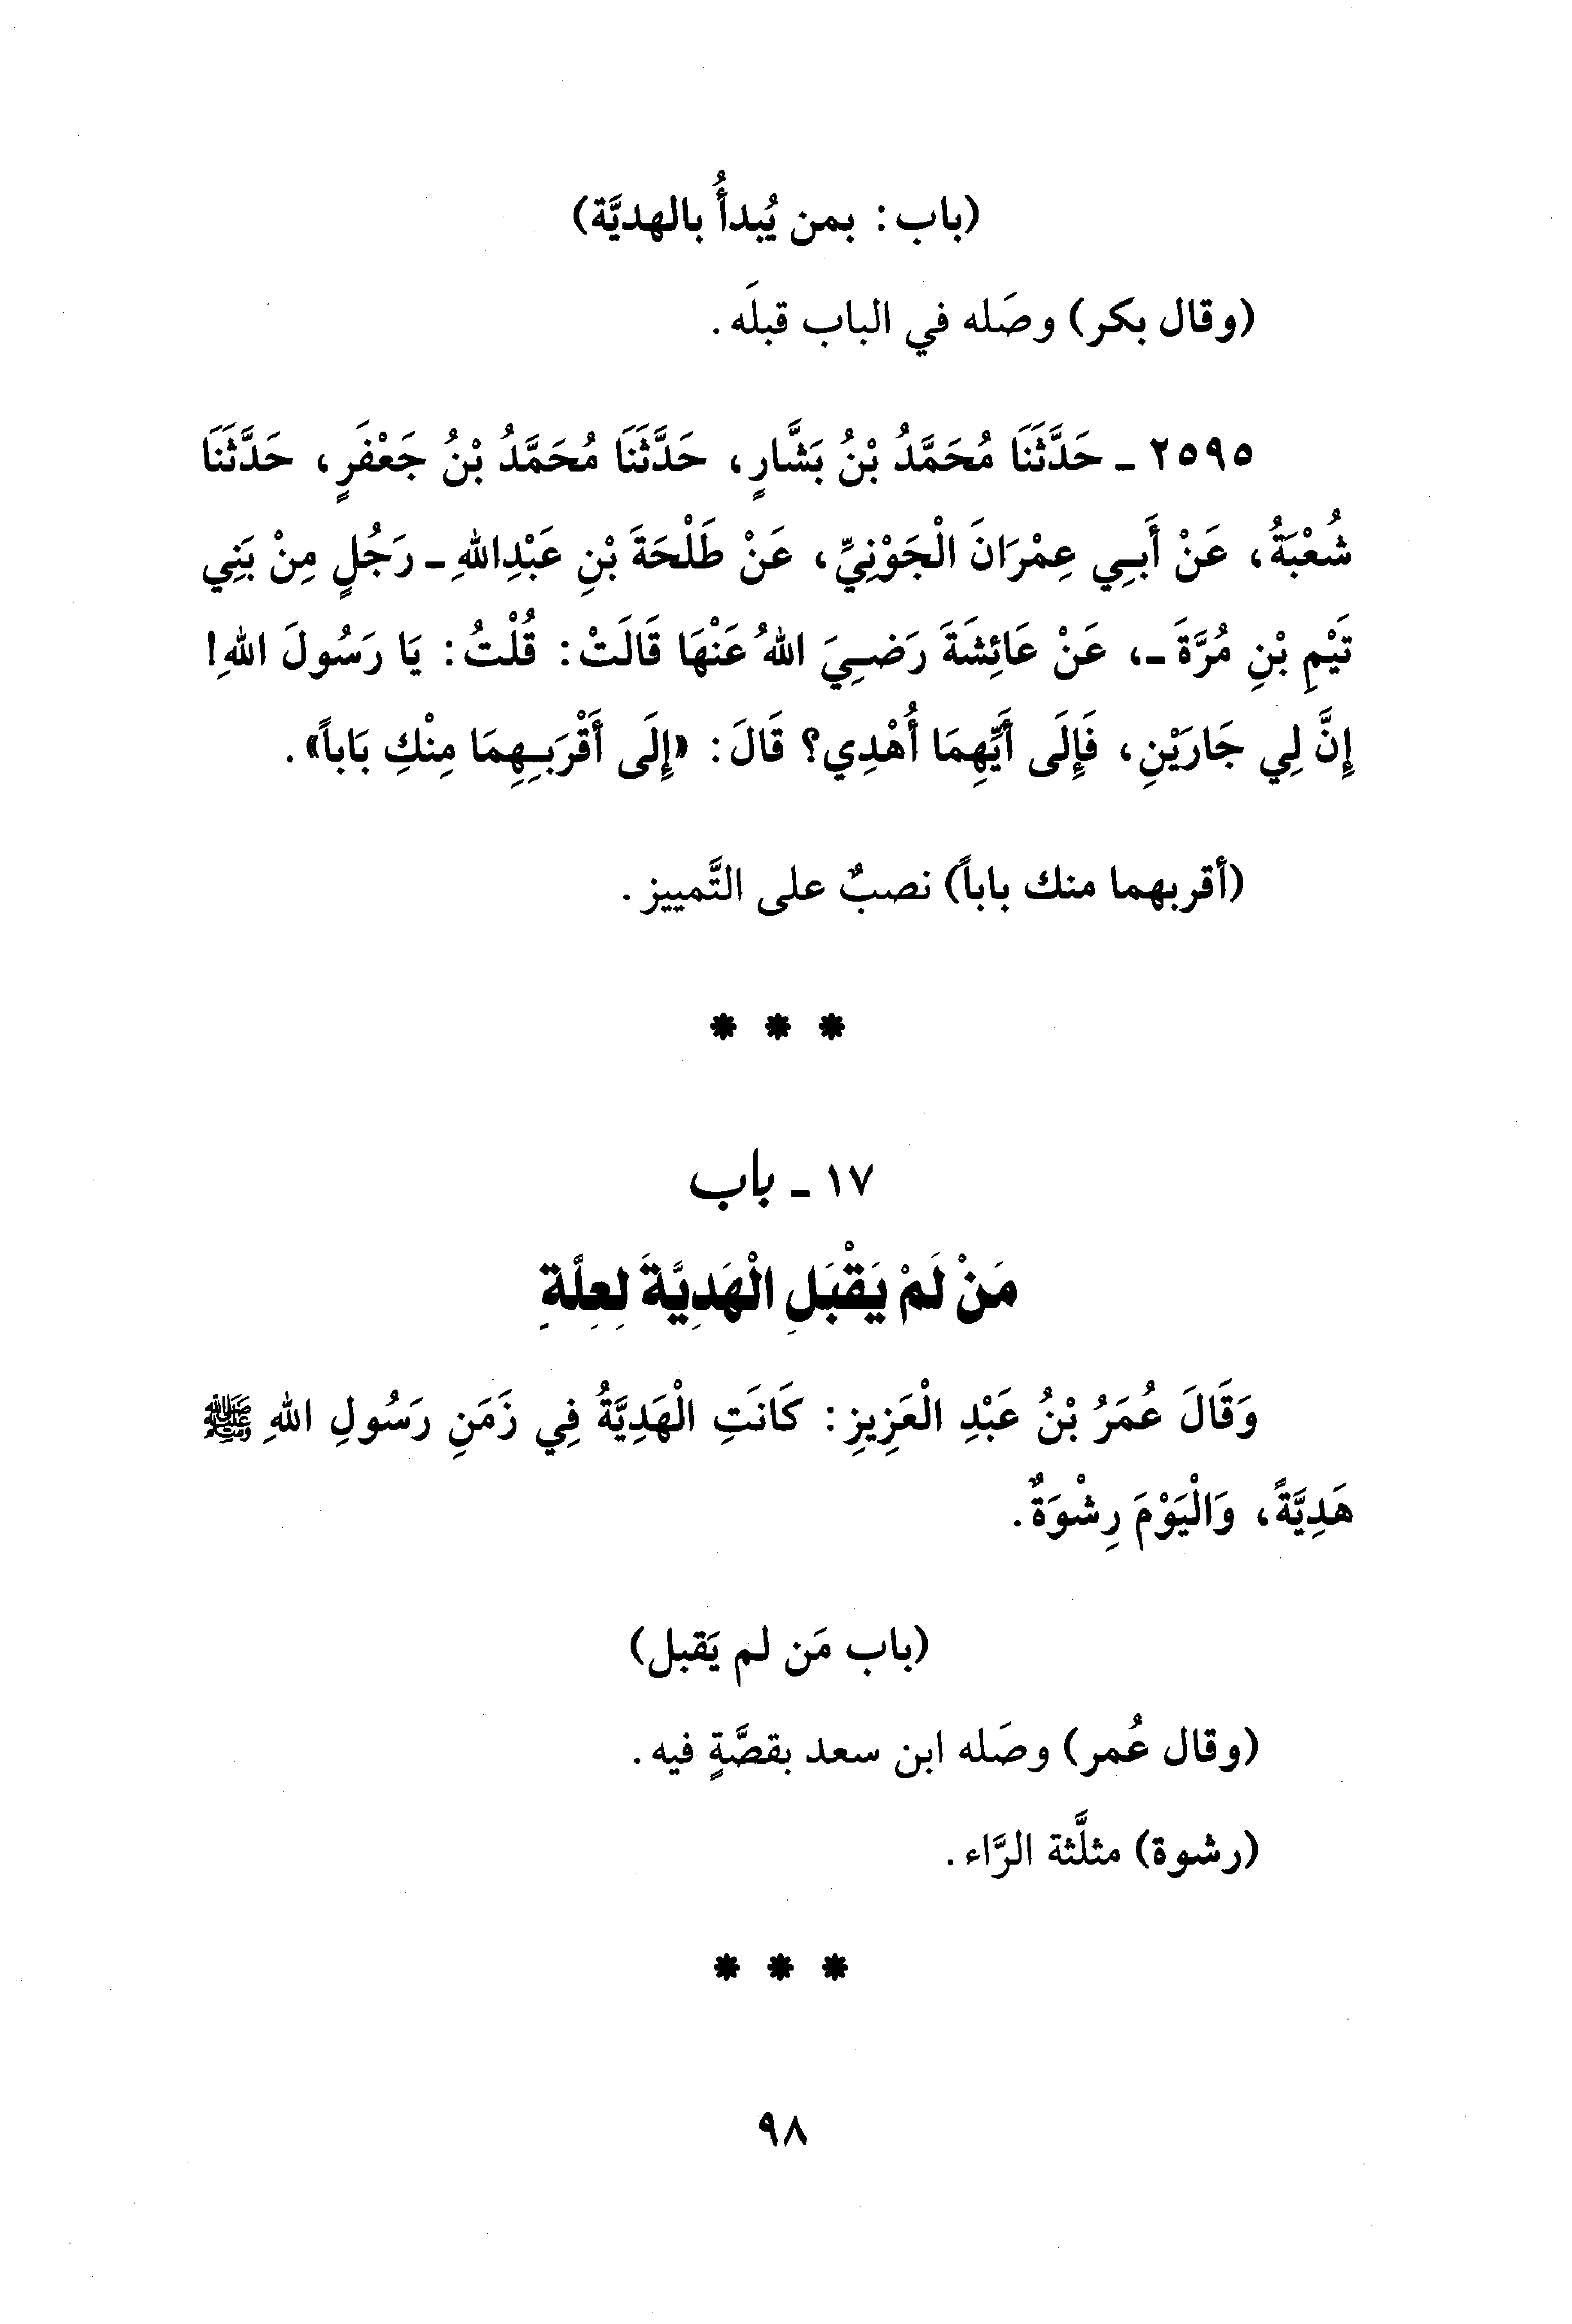 (باب: بمن يُبدأُ بالهديَّة)
(وقال بكر) وصَله في الباب قبلَه.
٢٥٩٥ ـ حَدَّثَنَا مُحَمَّدُ بْنُ بَشَّارٍ، حَدَّثَنَا مُحَمَّدُ بْنُ جَعْفَرٍ، حَدَّثَنَا
شُعْبَةُ، عَنْ أَبِي عِمْرَانَ الْجَوْنِيِّ، عَنْ طَلْحَةَ بْنِ عَبْدِاللهِ ـ رَجُلٍ مِنْ بَنِي
تَيْمِ بْنِ مُرَّةَ ـ، عَنْ عَائِشَةَ رَضِيَ اللهُ عَنْهَا قَالَتْ: قُلْتُ: يَا رَسُولَ اللهِ!
إِنَّ لِي جَارَيْنِ، فَإِلَى أَيِّهِمَا أُهْدِي؟ قَالَ: «إِلَى أَقْرَبِهِمَا مِنْكِ بَاباً».
(أقربهما منك باباً) نصبٌ على التَّمييز.
* * *
١٧ ـ باب
مَنْ لَمْ يَقْبَلِ الْهَدِيَّةَ لِعِلَّةٍ
وَقَالَ عُمَرُ بْنُ عَبْدِ الْعَزِيزِ: كَانَتِ الْهَدِيَّةُ فِي زَمَنِ رَسُولِ اللهِ ﷺ
هَدِيَّةً، وَالْيَوْمَ رِشْوَةٌ.
(باب مَن لم يَقبل)
(وقال عُمر) وصَله ابن سعد بقصَّةٍ فيه.
(رشوة) مثلَّثة الرَّاء.
* * *
٩٨